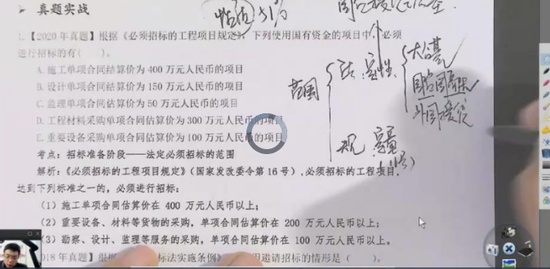 真题实战
51%
【2020年真题】根据《必须招标的工程项目规定》,下列使用国有资金的项目中,必须
进行招标的有( )。
A.施工单项合同结算价为400万元人民币的项目
B.设计单项合同估算价为150万元人民币的项目
C.监理单项合同估算价为50万元人民币的项目
D.工程材料采购单项合同估算价为300万元人民币的项目
E.重要设备采购单项合同估算价为100万元人民币的项目
范围
定性
规
考点:招标准备阶段——法定必须招标的范围
解析:《必须招标的工程项目规定》(国家发改委令第16号),必须招标的工程项目,
达到下列标准之一的,必须进行招标:
(1)施工单项合同估算价在400万元人民币以上;
(2)重要设备、材料等货物的采购,单项合同估算价在200万元人民币以上;
(3)勘察、设计、监理等服务的采购,单项合同估算价在100万元人民币以上。
18年真题】根据 标法实施条例 用邀请招标的情形是( )。